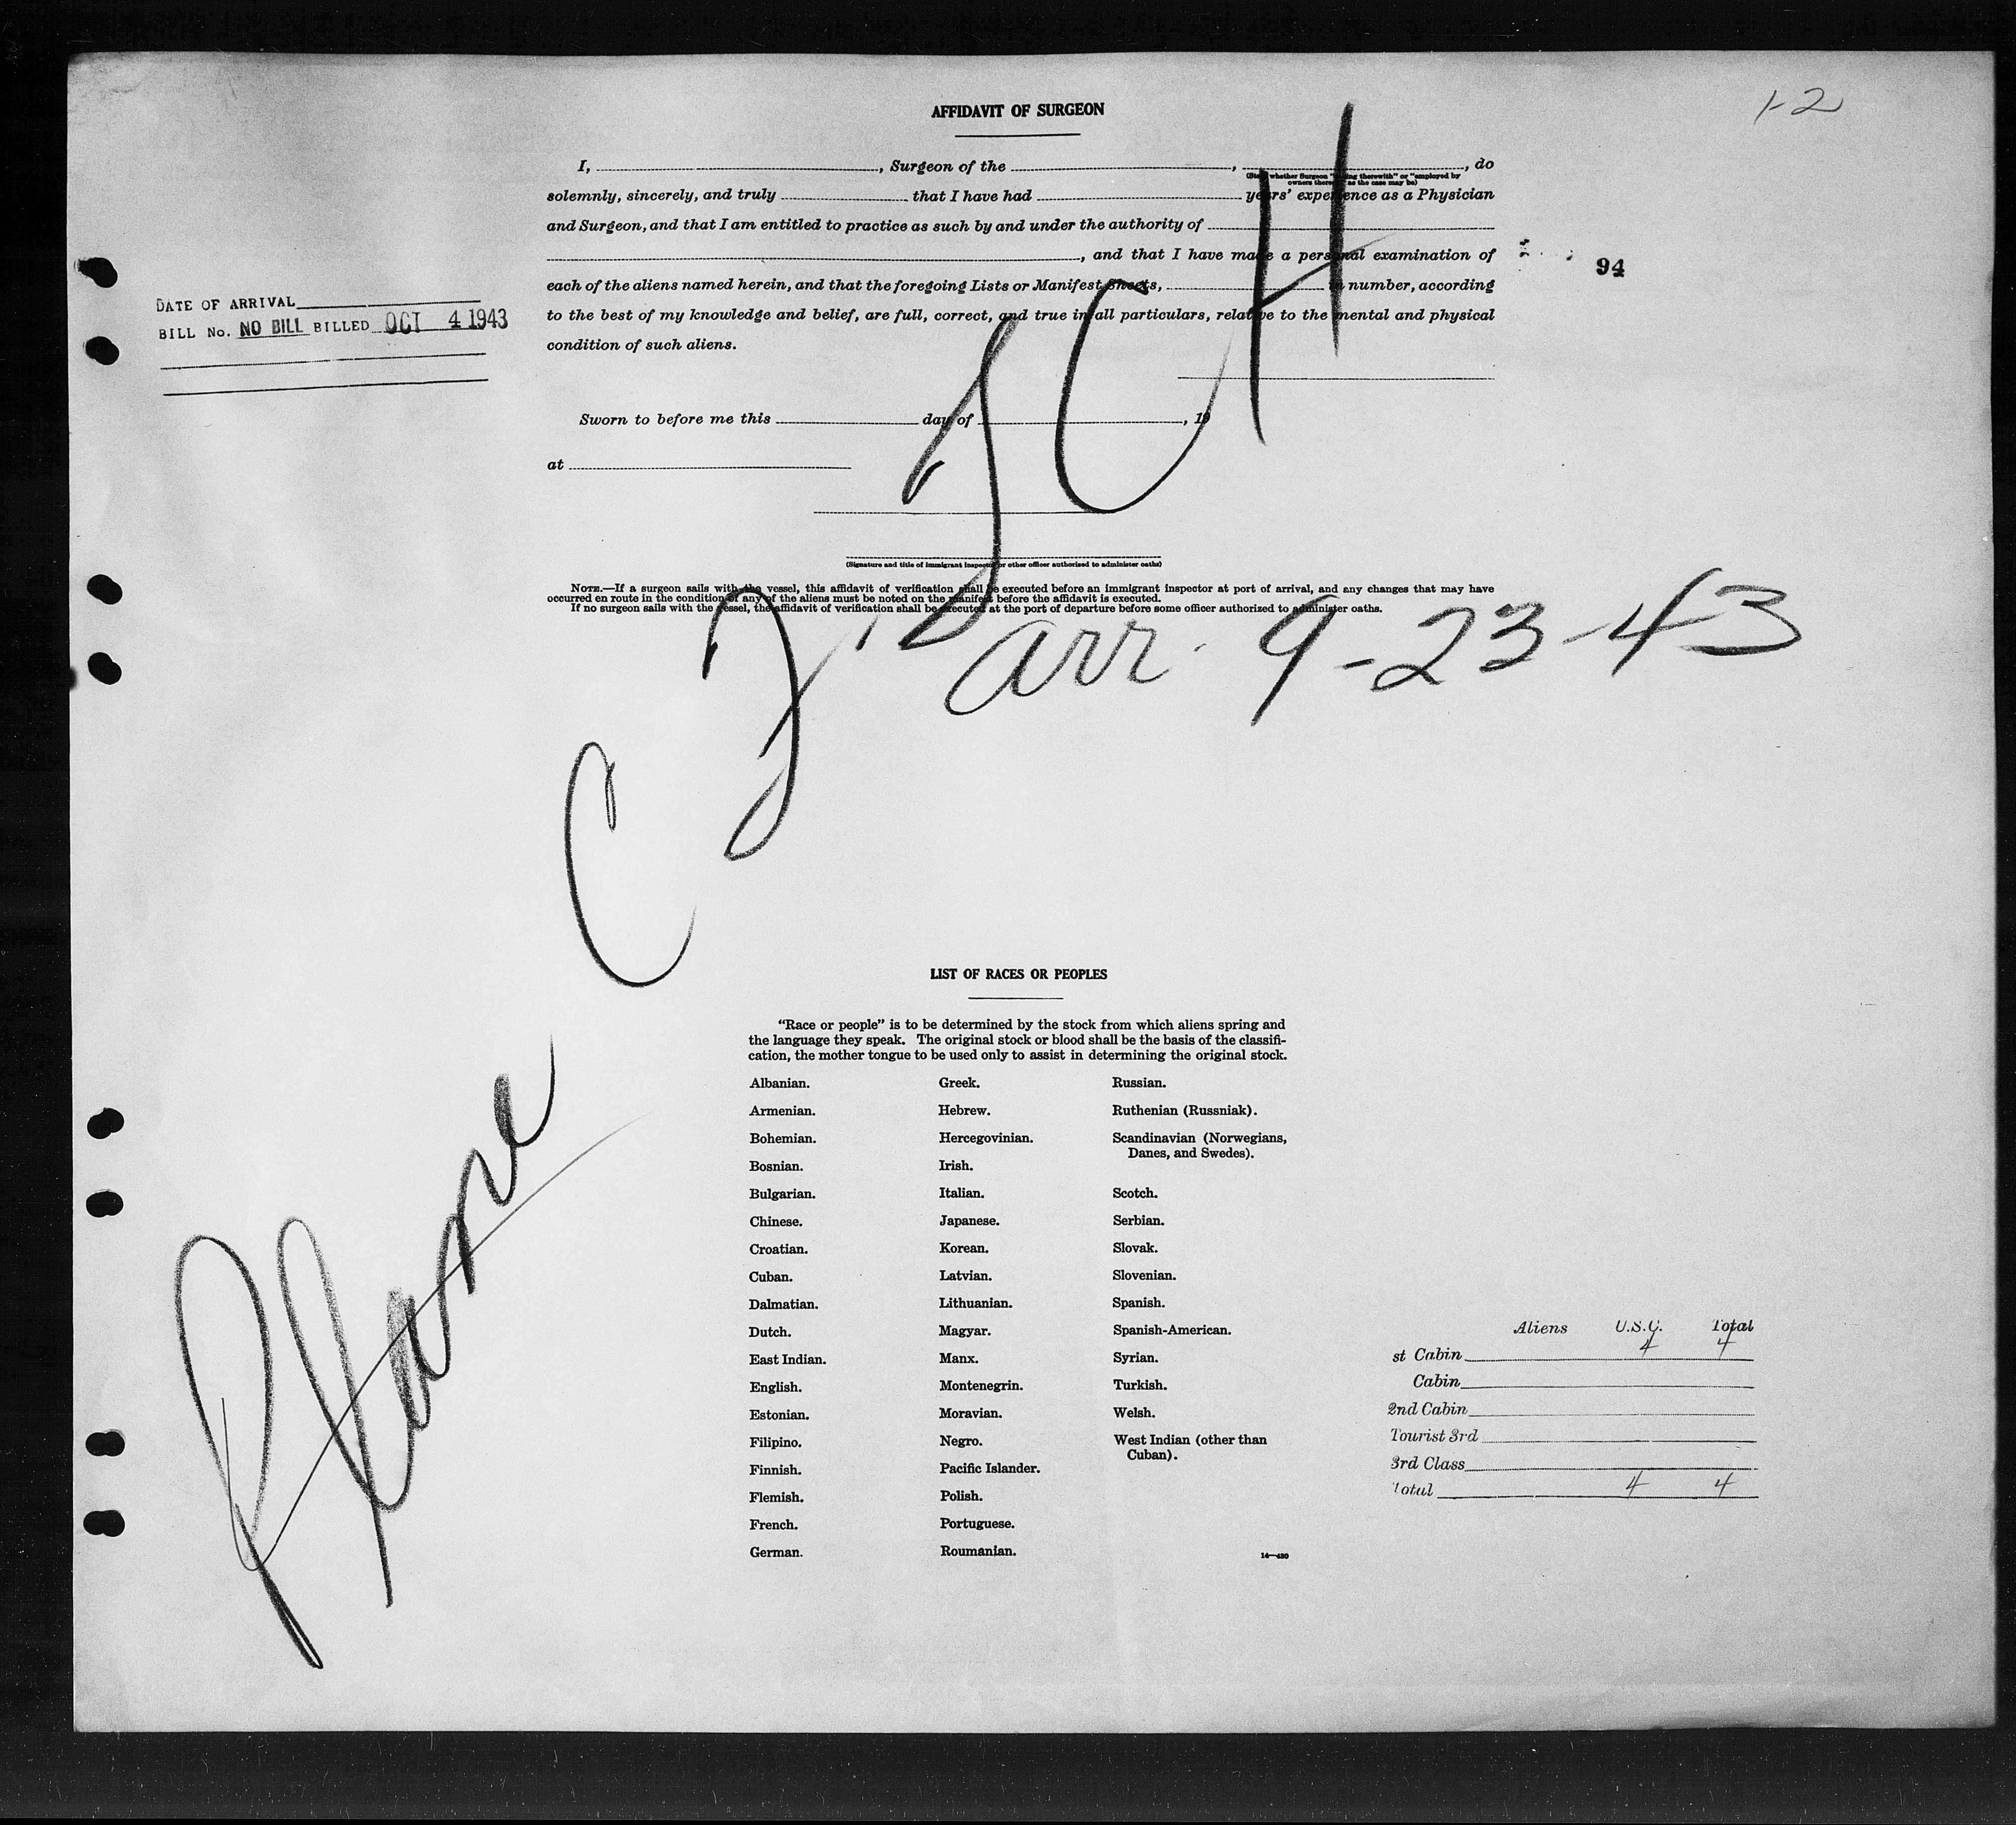 1-2
AFFIDAVIT OF SURGEON
I, , Surgeon of the , , do
(State whether Surgeon "sailing therewith" or "employed by
owners thereof," as the case may be)
solemnly, sincerely, and truly that I have had years' experience as a Physician
and Surgeon, and that I am entitled to practice as such by and under the authority of
, and that I have made a personal examination of
94
each of the aliens named herein, and that the foregoing Lists or Manifest Sheets, in number, according
to the best of my knowledge and belief, are full, correct, and true in all particulars, relative to the mental and physical
condition of such aliens.
DATE OF ARRIVAL
BILL No. NO BILL BILLED OCT 4 1943
Sworn to before me this day of , 19
at
(Signature and title of immigrant inspector or other officer authorized to administer oaths)
NOTE.—If a surgeon sails with the vessel, this affidavit of verification shall be executed before an immigrant inspector at port of arrival, and any changes that may have
occurred en route in the condition of any of the aliens must be noted on the manifest before the affidavit is executed.
If no surgeon sails with the vessel, the affidavit of verification shall be executed at the port of departure before some officer authorized to administer oaths.
Plane C
arr. 9-23-43
LIST OF RACES OR PEOPLES
"Race or people" is to be determined by the stock from which aliens spring and
the language they speak. The original stock or blood shall be the basis of the classifi-
cation, the mother tongue to be used only to assist in determining the original stock.
Albanian.
Armenian.
Bohemian.
Bosnian.
Bulgarian.
Chinese.
Croatian.
Cuban.
Dalmatian.
Dutch.
East Indian.
English.
Estonian.
Filipino.
Finnish.
Flemish.
French.
German.
Greek.
Hebrew.
Hercegovinian.
Irish.
Italian.
Japanese.
Korean.
Latvian.
Lithuanian.
Magyar.
Manx.
Montenegrin.
Moravian.
Negro.
Pacific Islander.
Polish.
Portuguese.
Roumanian.
Russian.
Ruthenian (Russniak).
Scandinavian (Norwegians,
Danes, and Swedes).
Scotch.
Serbian.
Slovak.
Slovenian.
Spanish.
Spanish-American.
Syrian.
Turkish.
Welsh.
West Indian (other than
Cuban).
14—430
Aliens U.S.C. Total
st Cabin 4 4
Cabin
2nd Cabin
Tourist 3rd
3rd Class
Total 4 4